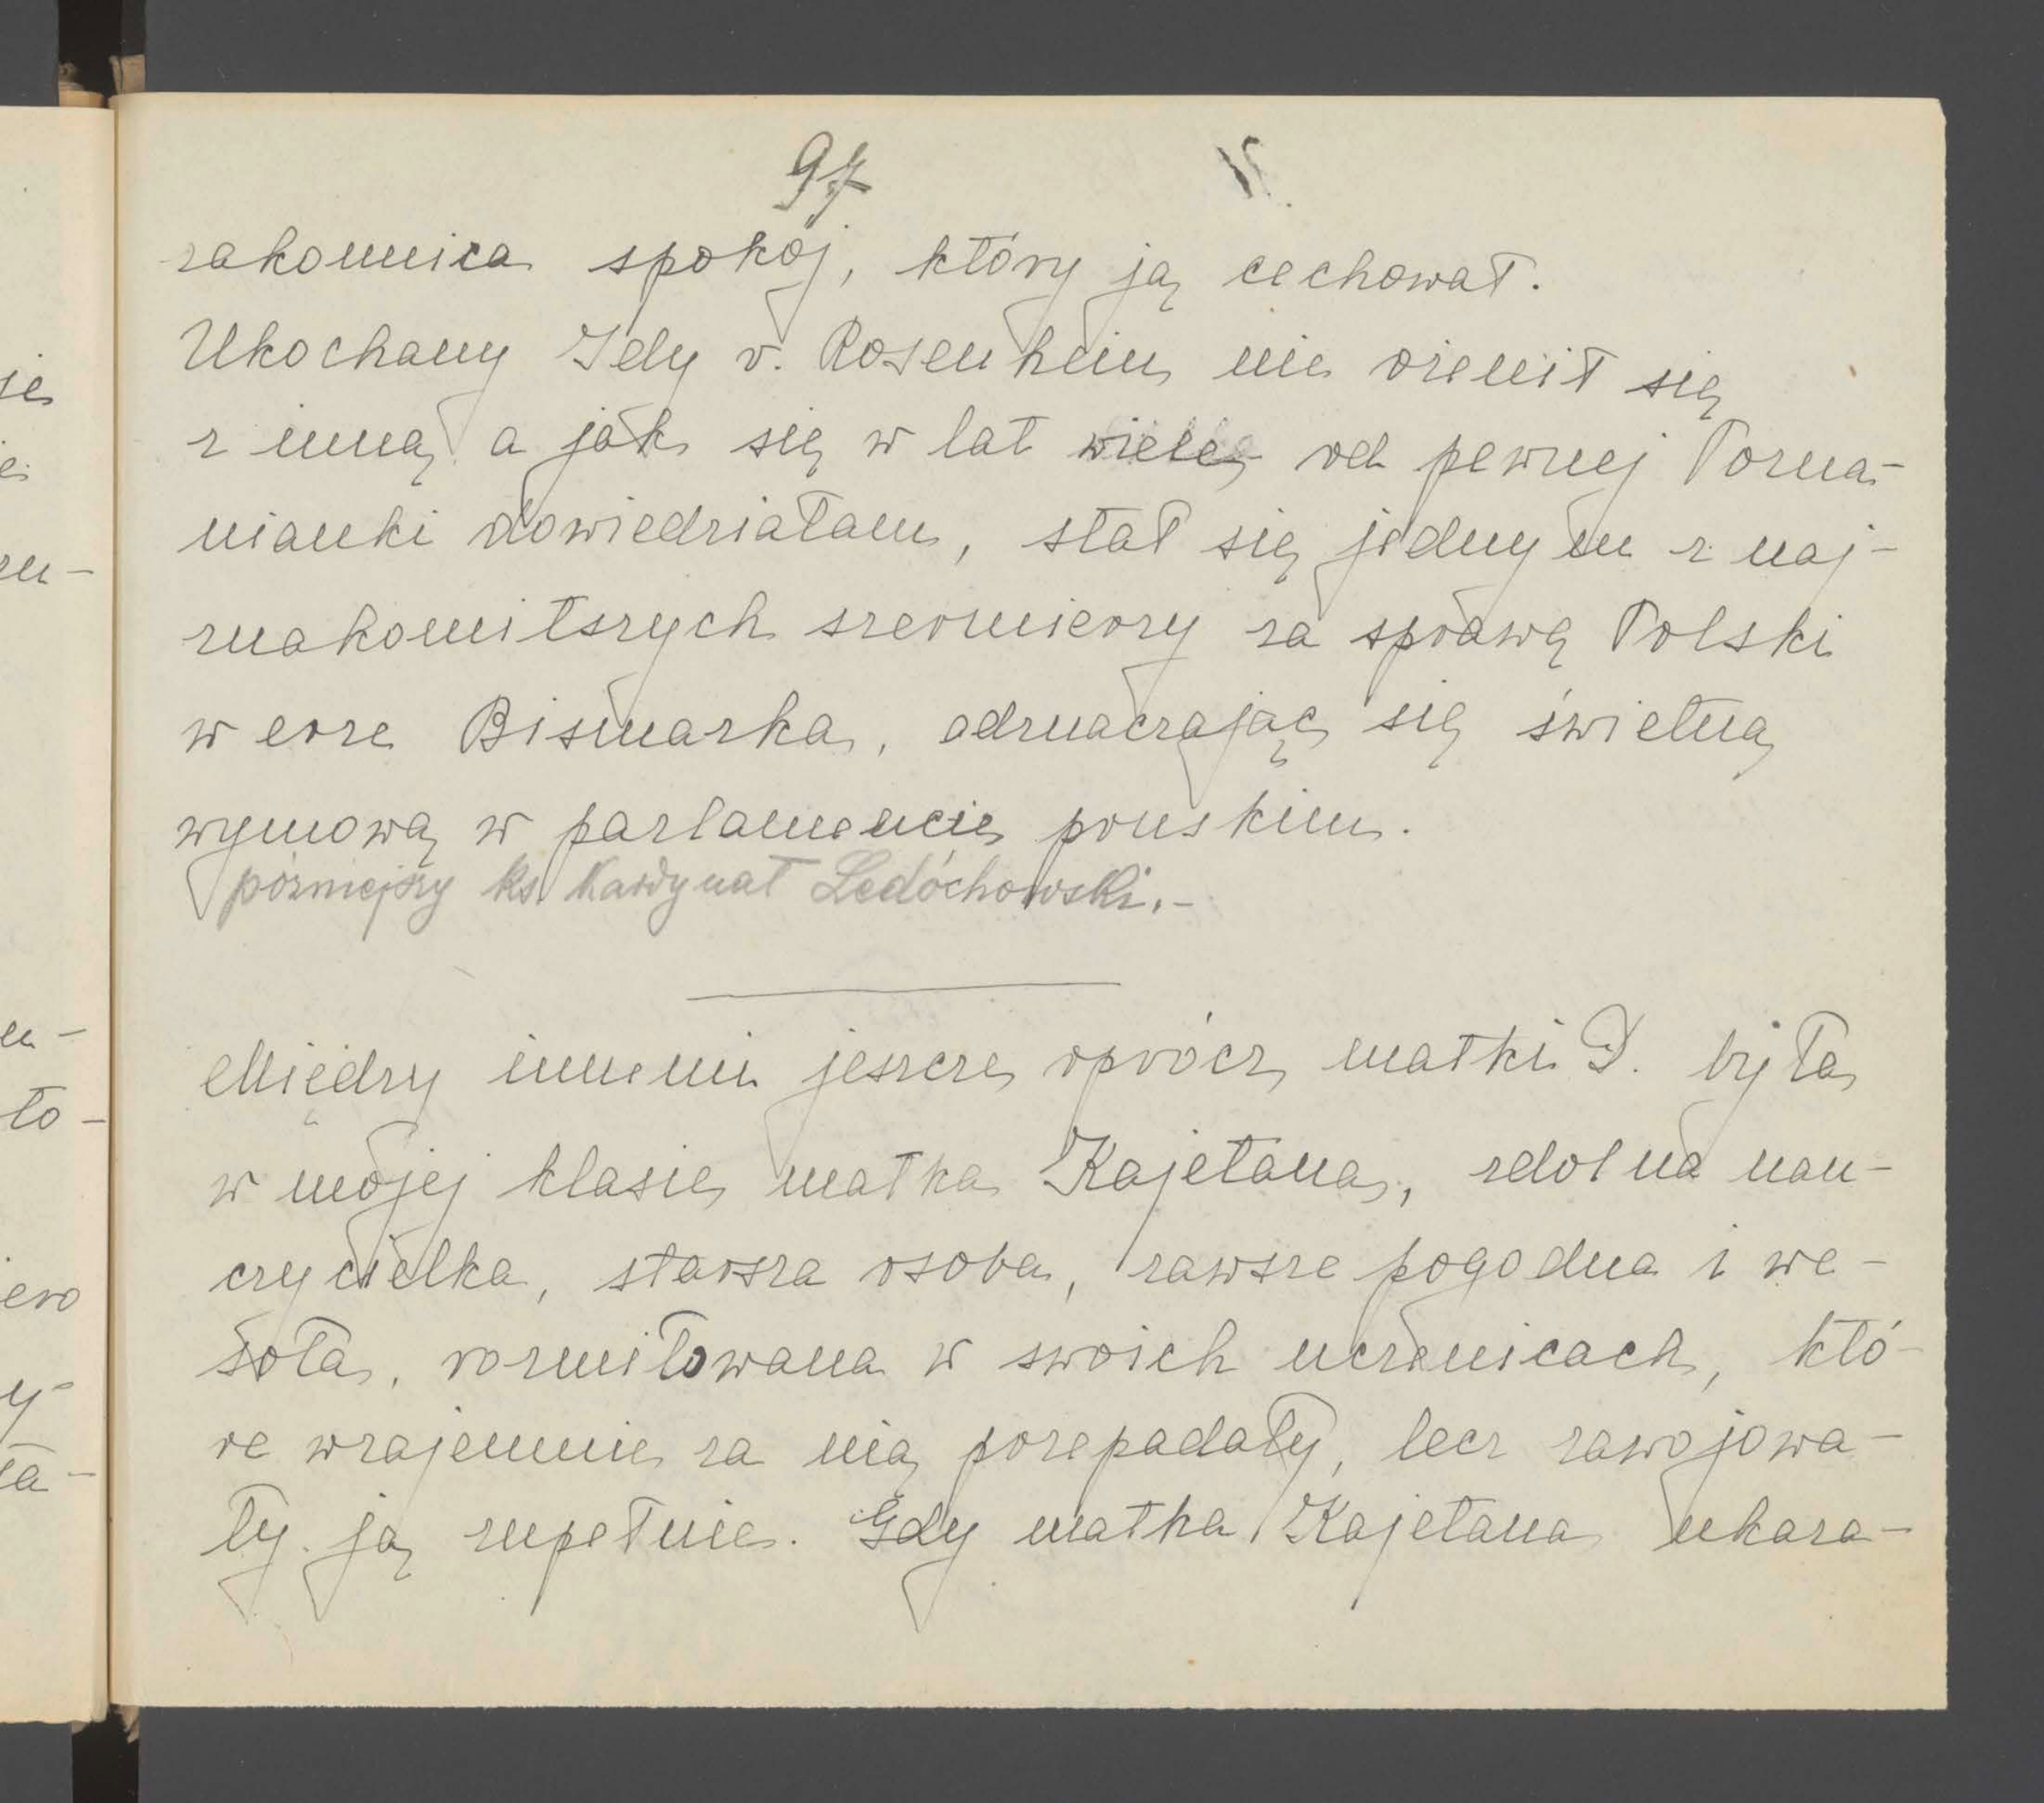 97
zakonnica spokój, który ją cechował.
Ukochany Idy v. Rosenheim nie ożenił się
z inną a jak się w lat wiele od pewnej Pozna-
nianki dowiedziałam, stał się jednym z naj-
znakomitszych szermierzy za sprawą Polski
w erze Bismarka, odznaczając się świetną
wymową w parlamencie pruskim.
późniejszy ks. Kardynał Ledóchowski.-
Między innemi jeszcze oprócz matki I. była
w mojej klasie matka Kajetana, zdolna nau-
czycielka, starsza osoba, zawsze pogodna i we-
soła, rozmiłowana w swoich uczenicach, któ-
re wzajemnie za nią przepadały, lecz zawojowa-
ły ją zupełnie. Gdy matka Kajetana ukaza-